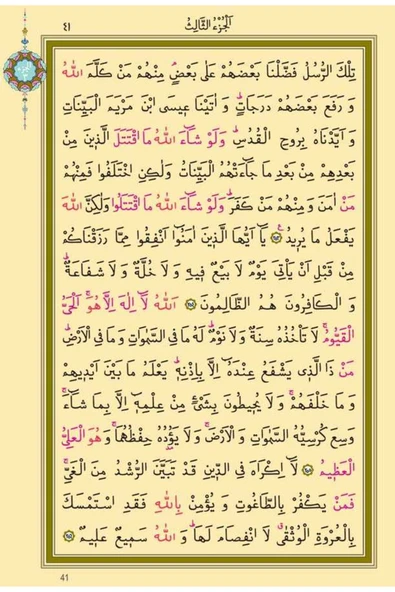 اَلْجُزْءُ الثَّالِثُ
٤١
تِلْكَ الرُّسُلُ فَضَّلْنَا بَعْضَهُمْ عَلٰى بَعْضٍۢ مِنْهُمْ مَنْ كَلَّمَ اللّٰهُ
وَ رَفَعَ بَعْضَهُمْ دَرَجَاتٍۜ وَ اٰتَيْنَا عٖيسَى ابْنَ مَرْيَمَ الْبَيِّنَاتِ
وَ اَيَّدْنَاهُ بِرُوحِ الْقُدُسِۜ وَلَوْ شَٓاءَ اللّٰهُ مَا اقْتَتَلَ الَّذٖينَ مِنْ
بَعْدِهِمْ مِنْ بَعْدِ مَا جَٓاءَتْهُمُ الْبَيِّنَاتُ وَلٰكِنِ اخْتَلَفُوا فَمِنْهُمْ
مَنْ اٰمَنَ وَ مِنْهُمْ مَنْ كَفَرَۜ وَلَوْ شَٓاءَ اللّٰهُ مَا اقْتَتَلُوا وَلٰكِنَّ اللّٰهَ
يَفْعَلُ مَا يُرٖيدُ ۟ ﴿٢٥٣﴾ يَٓا اَيُّهَا الَّذٖينَ اٰمَنُٓوا اَنْفِقُوا مِمَّا رَزَقْنَاكُمْ
مِنْ قَبْلِ اَنْ يَأْتِيَ يَوْمٌ لَا بَيْعٌ فٖيهِ وَ لَا خُلَّةٌ وَ لَا شَفَاعَةٌۜ
وَ الْكَافِرُونَ هُمُ الظَّالِمُونَ ﴿٢٥٤﴾ اَللّٰهُ لَٓا اِلٰهَ اِلَّا هُوَۚ اَلْحَيُّ
الْقَيُّومُۚ لَا تَأْخُذُهُ سِنَةٌ وَ لَا نَوْمٌۜ لَهُ مَا فِي السَّمٰوَاتِ وَ مَا فِي الْاَرْضِۜ
مَنْ ذَا الَّذٖي يَشْفَعُ عِنْدَهُٓ اِلَّا بِاِذْنِهٖۜ يَعْلَمُ مَا بَيْنَ اَيْدٖيهِمْ
وَ مَا خَلْفَهُمْۚ وَ لَا يُحٖيطُونَ بِشَيْءٍ مِنْ عِلْمِهٖٓ اِلَّا بِمَا شَٓاءَۚ
وَسِعَ كُرْسِيُّهُ السَّمٰوَاتِ وَ الْاَرْضَۚ وَ لَا يَؤُ۫دُهُ حِفْظُهُمَاۚ وَ هُوَ الْعَلِيُّ
الْعَظٖيمُ ﴿٢٥٥﴾ لَٓا اِكْرَاهَ فِي الدّٖينِ قَدْ تَبَيَّنَ الرُّشْدُ مِنَ الْغَيِّۚ
فَمَنْ يَكْفُرْ بِالطَّاغُوتِ وَ يُؤْمِنْ بِاللّٰهِ فَقَدِ اسْتَمْسَكَ
بِالْعُرْوَةِ الْوُثْقٰىۗ لَا انْفِصَامَ لَهَاۜ وَ اللّٰهُ سَمٖيعٌ عَلٖيمٌ ﴿٢٥٦﴾
41